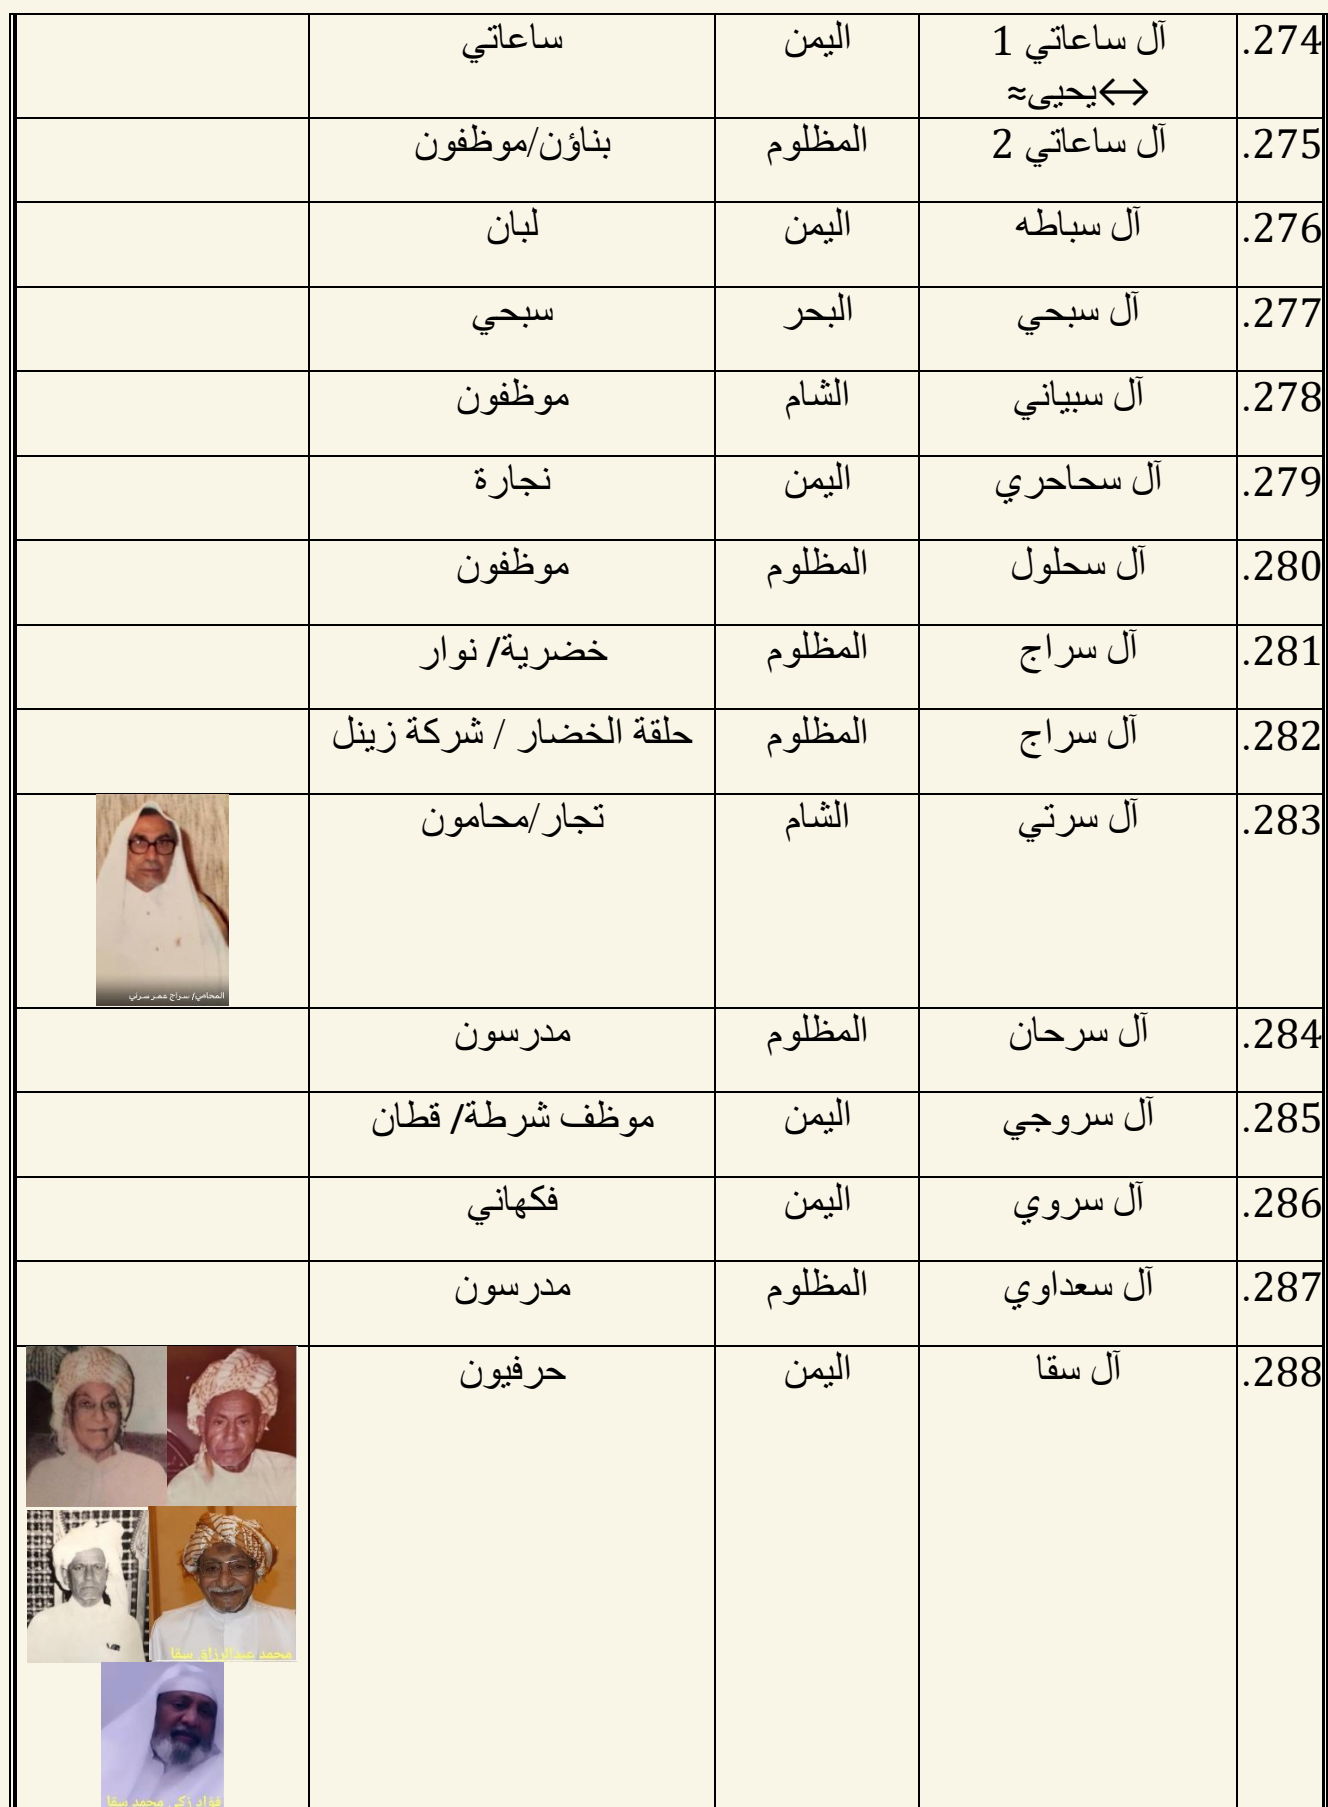 274. آل ساعاتي 1 اليمن ساعاتي
↔يحيى≈
275. آل ساعاتي 2 المظلوم بناؤن/موظفون
276. آل سباطه اليمن لبان
277. آل سبحي البحر سبحي
278. آل سبياني الشام موظفون
279. آل سحاحري اليمن نجارة
280. آل سحلول المظلوم موظفون
281. آل سراج المظلوم خضرية/ نوار
282. آل سراج المظلوم حلقة الخضار / شركة زينل
283. آل سرتي الشام تجار/محامون
المحامي/ سراج عمر سرتي
284. آل سرحان المظلوم مدرسون
285. آل سروجي اليمن موظف شرطة/ قطان
286. آل سروي اليمن فكهاني
287. آل سعداوي المظلوم مدرسون
288. آل سقا اليمن حرفيون
محمد عبدالرزاق سقا
فؤاد زكي محمد سقا